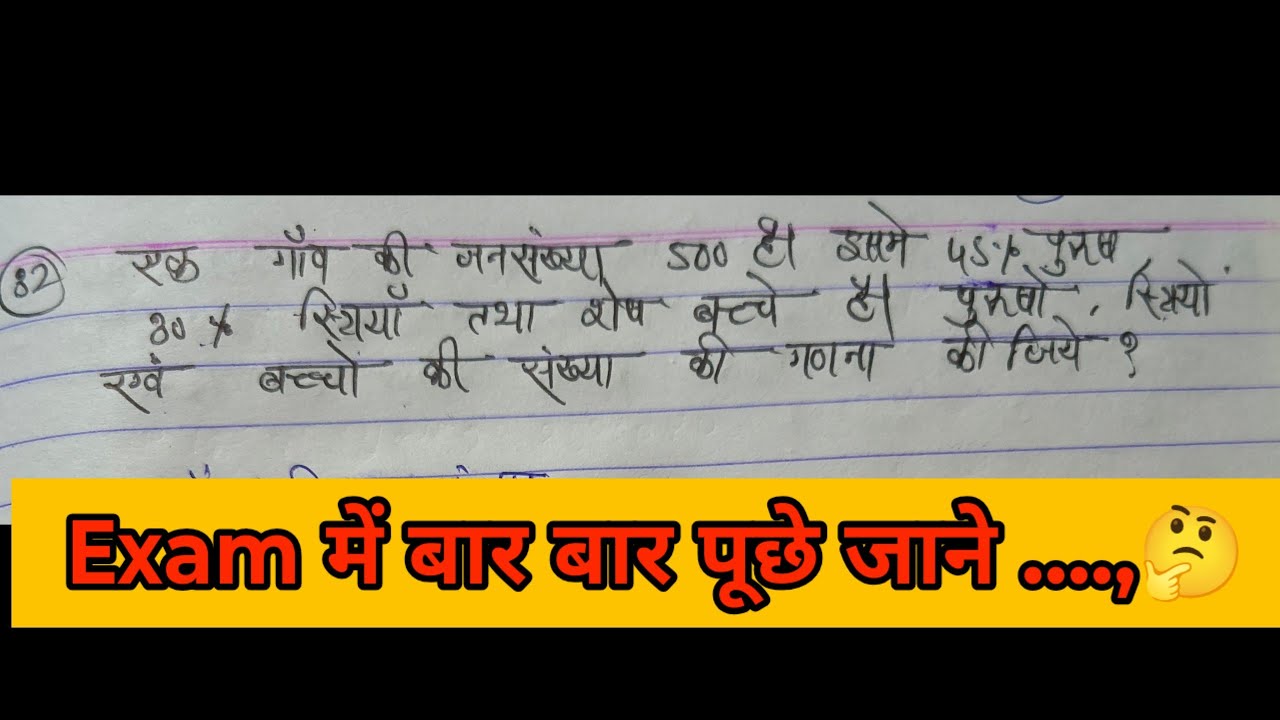 82 एक गाँव की जनसंख्या 500 है। इसमे 45% पुरुष
30% स्त्रियाँ तथा शेष बच्चे है। पुरुषो, स्त्रियों
एवं बच्चों की संख्या की गणना कीजिये ?
Exam में बार बार पूछे जाने ....,🤔